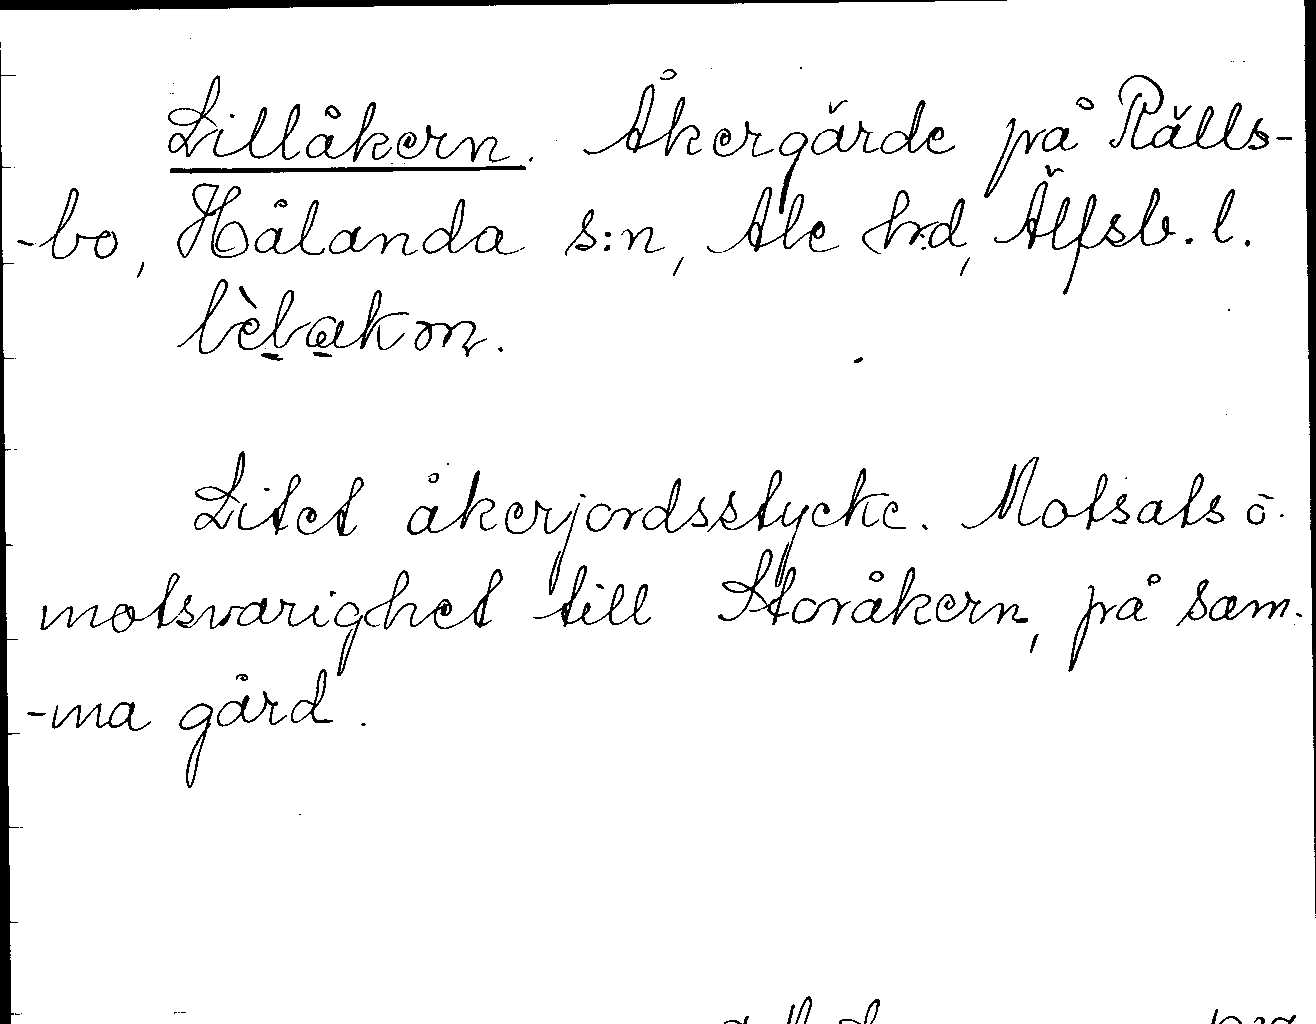 Lillåkern. Åkergärde på Rälls-
-bo, Hålanda s:n, Ale h:d, Älfsb. l.
Litet åkerjordsstycke. Motsats o.
motsvarighet till Storåkern, på sam-
-ma gård.